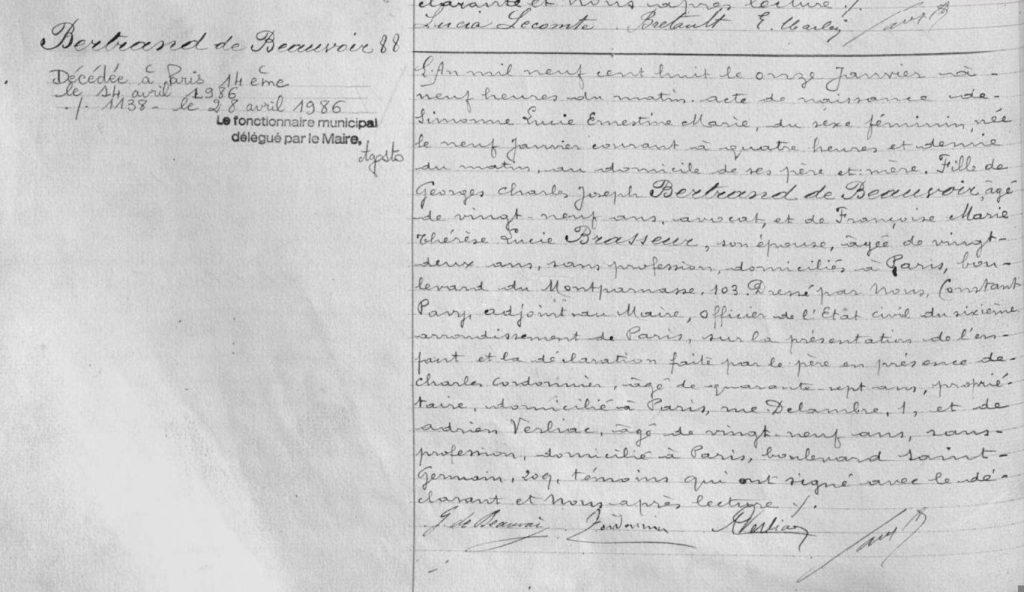 clarante et Nous après lecture ./.
Lucia Lecomte Bretault E. Marlin
Bertrand de Beauvoir 88
Décédée à Paris 14ème
le 14 avril 1986
./. 1138 - le 28 avril 1986
Le fonctionnaire municipal
délégué par le Maire,
Agosto
L'An mil neuf cent huit le onze Janvier à
neuf heures du matin. acte de naissance de
Simonne Lucie Ernestine Marie, du sexe féminin, née
le neuf Janvier courant à quatre heures et demie
du matin, au domicile de ses père et mère. Fille de
Georges Charles Joseph Bertrand de Beauvoir, âgé
de vingt-neuf ans, avocat, et de Françoise Marie
Thérèse Lucie Brasseur, son épouse, âgée de vingt-
deux ans, sans profession, domiciliés à Paris, bou-
levard du Montparnasse. 103. Dressé par Nous, Constant
Pavy, adjoint au Maire, Officier de l'Etat civil du sixième
arrondissement de Paris, sur la présentation de l'en-
fant et la déclaration faite par le père en présence de
Charles Cordonnier, âgé de quarante-sept ans, proprié-
taire, domicilié à Paris, rue Delambre, 1, et de
adrien Verliac, âgé de vingt-neuf ans, sans
profession, domicilié à Paris, boulevard Saint-
Germain, 209, témoins qui ont signé avec le dé-
clarant et Nous après lecture ./.
G de Beauvoir Cordonnier AVerliac Pavy